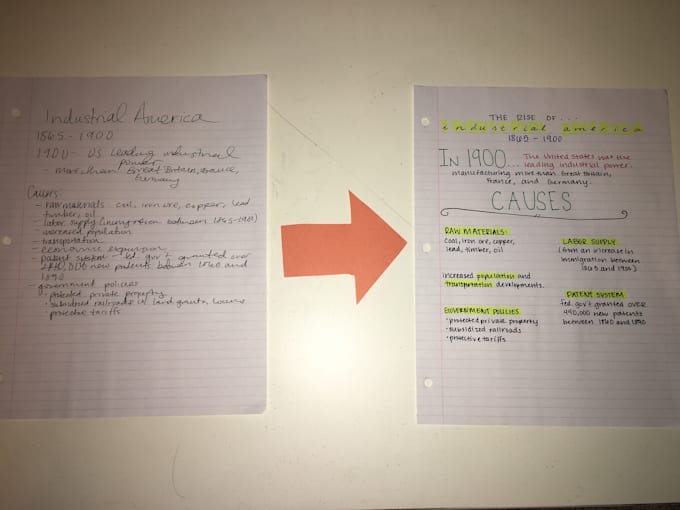 Industrial America
1865 - 1900
1900 - US leading industrial
power
- more than Great Britain, France,
Germany
Causes:
- raw materials: coil, iron ore, copper, lead
timber, oil
- labor supply (immigration between 1865-1900)
- increased population
- transportation
- economic expansion
- patent system - fed. gov't granted over
new patents between 1860 and
1890
- government policies
• protected private property
• subsidized railroads w/ land grants, loans
• protective tariffs
THE RISE OF...
industrial america
1865 - 1900
IN 1900... The United States was the
leading industrial power.
manufacturing more than Great Britain,
France, and Germany.
CAUSES
RAW MATERIALS:
coal, iron ore, copper,
lead, timber, oil
LABOR SUPPLY
(from an increase in
immigration between
1865 and 1900)
increased population and
transportation developments.
GOVERNMENT POLICIES
• protected private property
• subsidized railroads
• protective tariffs
PATENT SYSTEM
fed. gov't granted OVER
440,000 new patents
between 1860 and 1890